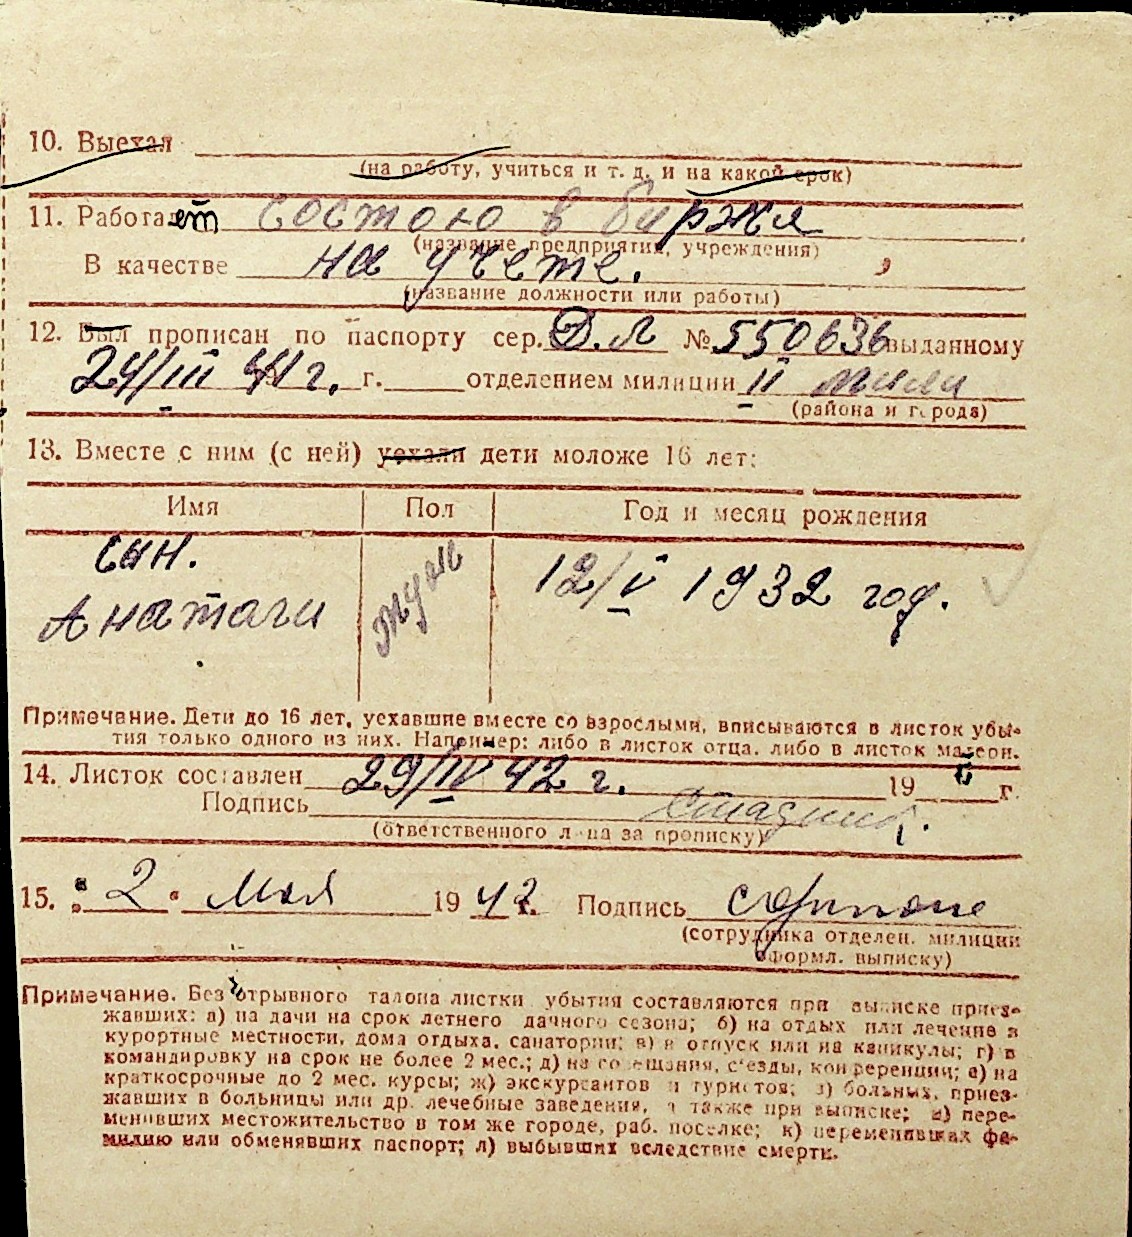 10. Выехал
(на работу, учиться и т. д. и на какой срок)
11. Работает состою в биржя
(название предприятия, учреждения)
В качестве на учете.
(название должности или работы)
12. Был прописан по паспорту сер. Д.Л № 550636 выданному
24/III 41 г. г. отделением милиции II мили
(района и города)
13. Вместе с ним (с ней) уехали дети моложе 16 лет:
Имя Пол Год и месяц рождения
сын.
Анатоли муж 12/V 1932 год.
Примечание. Дети до 16 лет, уехавшие вместе со взрослыми, вписываются в листок убы-
тия только одного из них. Например: либо в листок отца, либо в листок матери.
14. Листок составлен 29/IV 42 г. 19 г.
Подпись
(ответственного лица за прописку)
15. " 2 " мая 19 42 г. Подпись
(сотрудника отделен. милиции
оформл. выписку)
Примечание. Без отрывного талона листки убытия составляются при выписке приез-
жавших: а) на дачи на срок летнего дачного сезона; б) на отдых или лечение в
курортные местности, дома отдыха, санатории; в) в отпуск или на каникулы; г) в
командировку на срок не более 2 мес.; д) на совещания, съезды, конференции; е) на
краткосрочные до 2 мес. курсы; ж) экскурсантов и туристов; з) больных, приез-
жавших в больницы или др. лечебные заведения, а также при выписке; и) пере-
менивших местожительство в том же городе, раб. поселке; к) переменивших фа-
милию или обменявших паспорт; л) выбывших вследствие смерти.